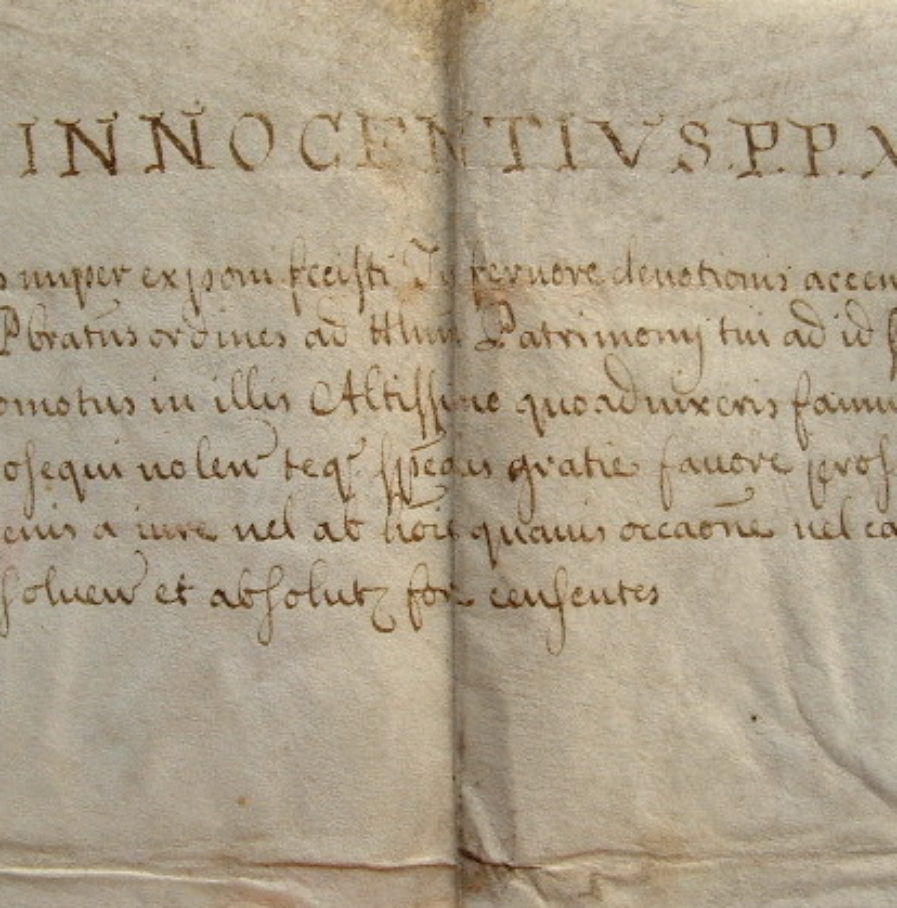 INNOCENTIVS.P.P.X
nuper exponi fecisti Tu feruore deuotionis accen
Pbratus ordines ad Patrimonij tui ad id
omotus in illis Altissimo quoad uixeris famu
osequi uolen teq specialis gratie fauore pros
enis a iure uel ab hoie quauis occaone uel ca
soluen et absolut for censentes